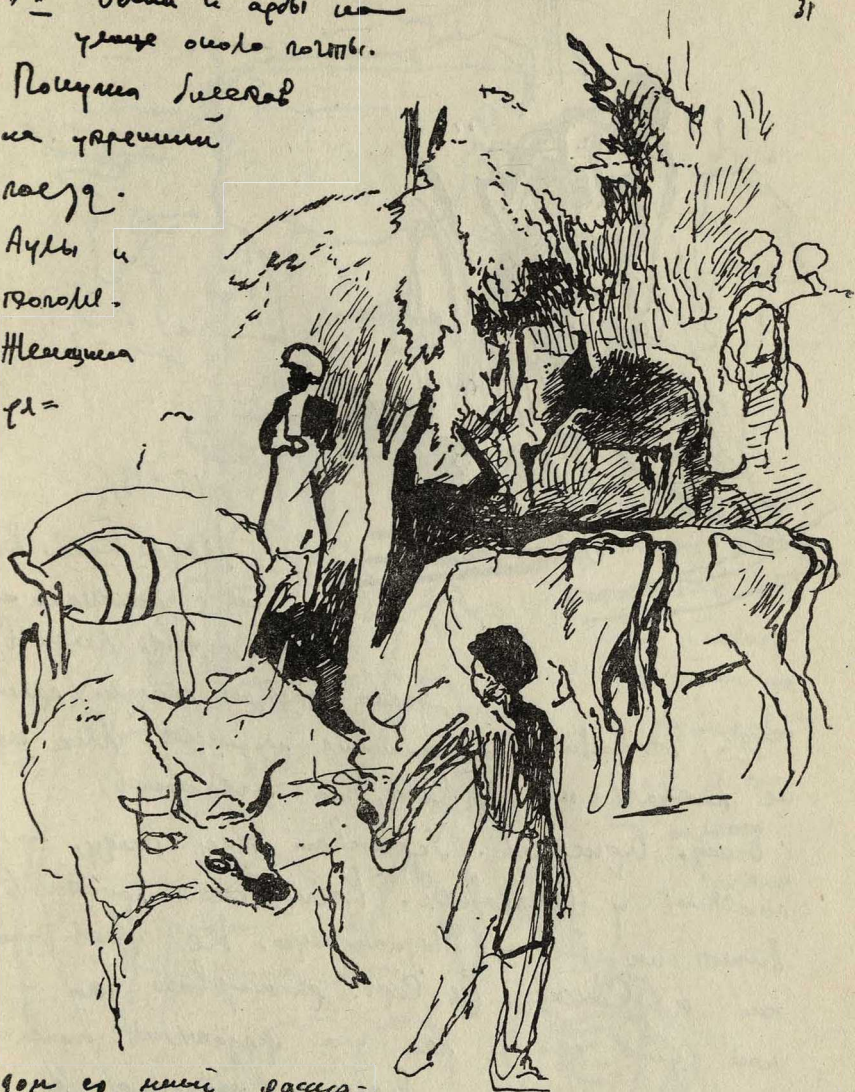 31
и арбы на
улице около почты.
Покупка билетов
на утренний
поезд.
Аулы и
тополя.
Женщина